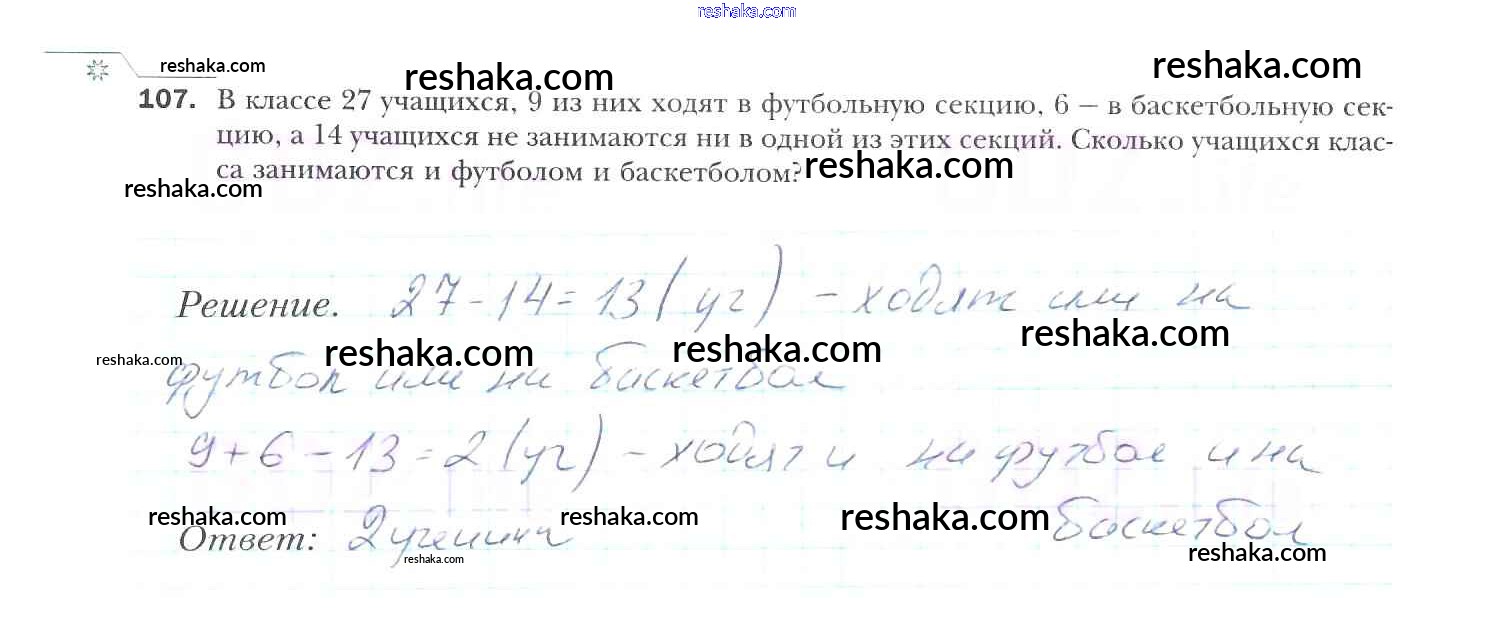 reshaka.com
reshaka.com reshaka.com reshaka.com
107. В классе 27 учащихся, 9 из них ходят в футбольную секцию, 6 – в баскетбольную сек-
цию, а 14 учащихся не занимаются ни в одной из этих секций. Сколько учащихся клас-
са занимаются и футболом и баскетболом?
reshaka.com
reshaka.com
Решение. 27 - 14 = 13 (уч) - ходят или на
reshaka.com reshaka.com reshaka.com reshaka.com
футбол или на баскетбол
9 + 6 - 13 = 2 (уч) - ходят и на футбол и на
баскетбол
reshaka.com reshaka.com reshaka.com
Ответ: 2 ученика
reshaka.com reshaka.com